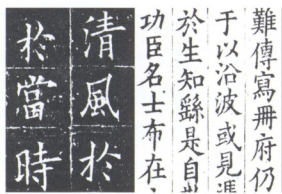 難傳寫冊府仍
于以沿波或見馮
於生知繇是自
功臣名士布在
清風於
於當時